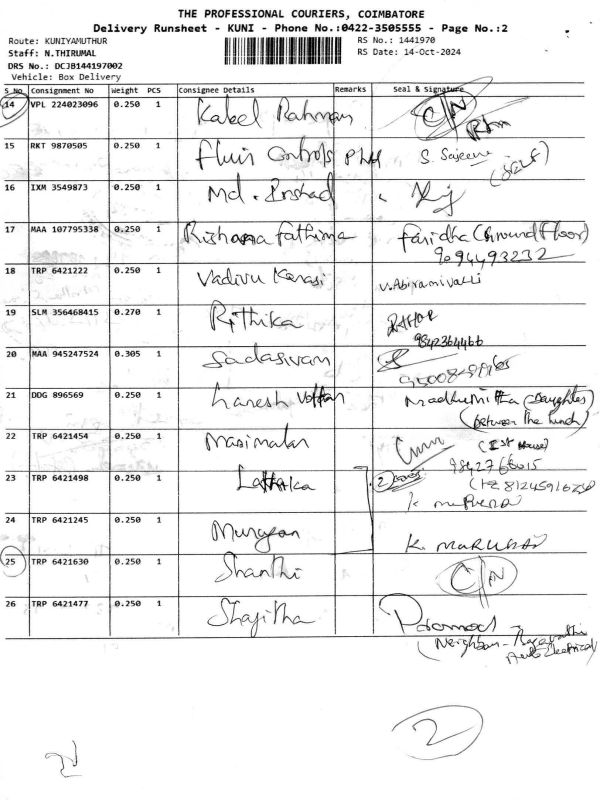 THE PROFESSIONAL COURIERS, COIMBATORE
Delivery Runsheet - KUNI - Phone No.:0422-3505555 - Page No.:2
Route: KUNIYAMUTHUR RS No.: 1441970
Staff: N.THIRUMAL RS Date: 14-Oct-2024
DRS No.: DCJB144197002
Vehicle: Box Delivery
S No Consignment No Weight PCS Consignee Details Remarks Seal & Signature
14 VPL 224023096 0.250 1 Kabeel Rahman C/N
15 RKT 9870505 0.250 1 Fluir Controls Pltd S. Sajeene
(self)
16 IXM 3549873 0.250 1 Md. Irshad
17 MAA 107795338 0.250 1 Rishana fathima faridha (Ground Floor)
9094493232
18 TRP 6421222 0.250 1 Vadivu Karasi V. Abiramivalli
19 SLM 356468415 0.270 1 Rithika
9842364466
20 MAA 945247524 0.305 1 Sadasivan
21 DDG 896569 0.250 1 Madhumitha (Daughter)
(between the lunch)
22 TRP 6421454 0.250 1 Masimalar (1st House)
23 TRP 6421498 0.250 1 2
24 TRP 6421245 0.250 1 Murugan K. MARUHAI
25 TRP 6421630 0.250 1 Shanthi C/N
26 TRP 6421477 0.250 1 Shajitha Promod
(Neighbour -
Auto Electrical)
2